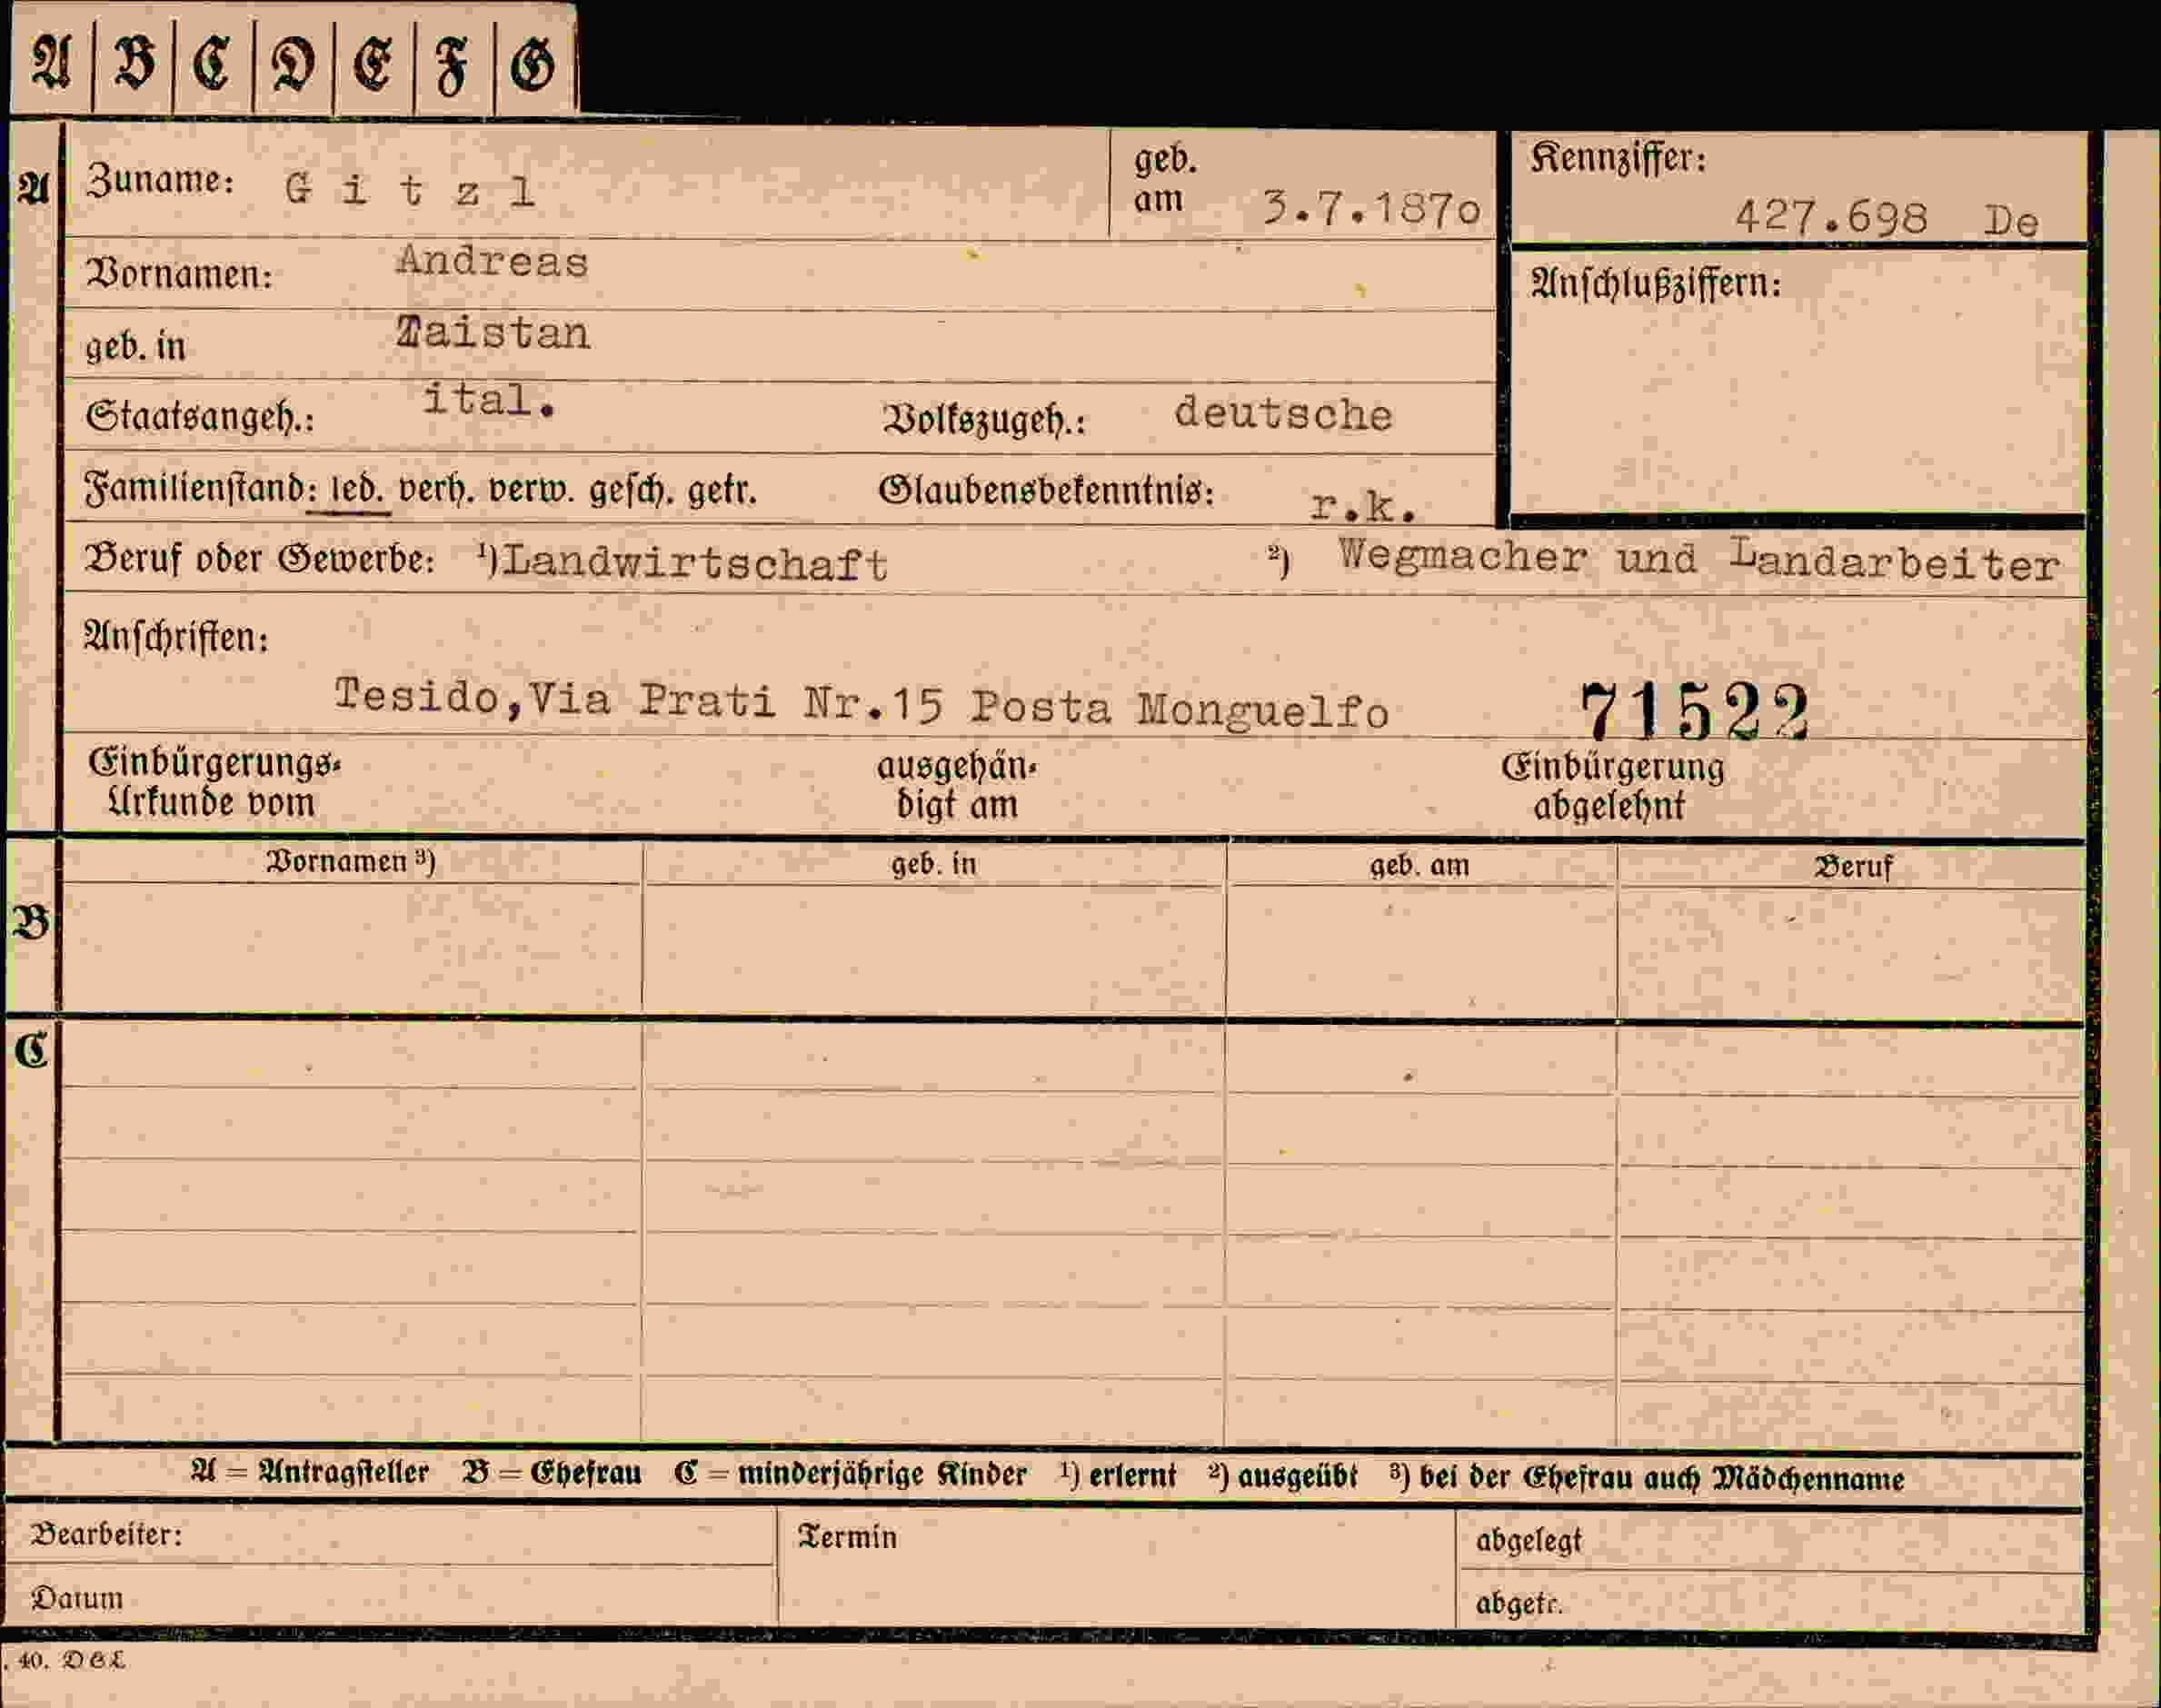 A B C D E F G
A Zuname: Gitzl geb. am 3.7.1870 Kennziffer: 427.698 De
Vornamen: Andreas Anschlußziffern:
geb. in Taistan
Staatsangeh.: ital. Volkszugeh.: deutsche
Familienstand: led. verh. verw. gesch. getr. Glaubensbekenntnis: r.k.
Beruf oder Gewerbe: ¹) Landwirtschaft ²) Wegmacher und Landarbeiter
Anschriften:
Tesido,Via Prati Nr.15 Posta Monguelfo 71522
Einbürgerungs- ausgehän- Einbürgerung
Urkunde vom digt am abgelehnt
Vornamen ³) geb. in geb. am Beruf
B
C
A = Antragsteller B = Ehefrau C = minderjährige Kinder ¹) erlernt ²) ausgeübt ³) bei der Ehefrau auch Mädchenname
Bearbeiter: Termin abgelegt
Datum abgetr.
. 40. DEL